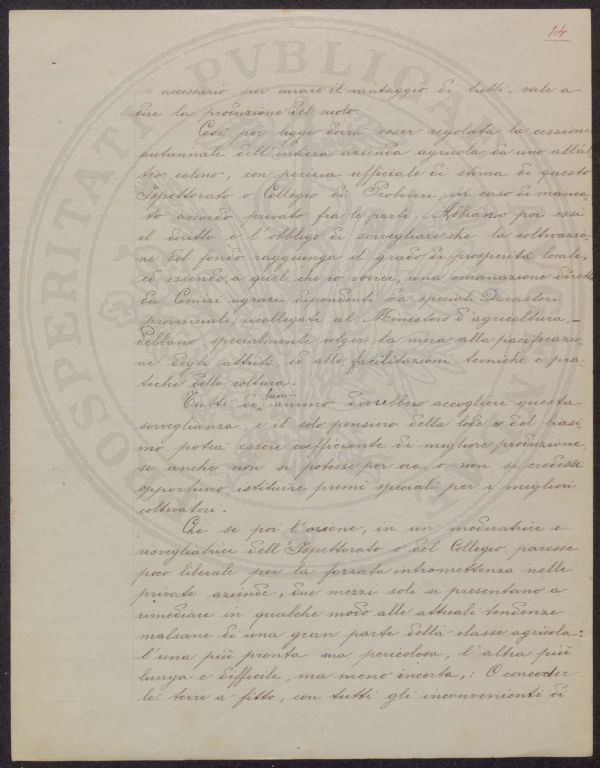 14
necessario per curare il vantaggio di tutti, vale a
dire la produzione del suolo.
Così per legge dovrà esser regolata la cessione
autunnale dell'intera azienda agricola da uno all'al
tro colono, con perizia ufficiale di stima di questo
Ispettorato o Collegio di Probiviri, in caso di manca
to accordo privato fra le parti. Abbiano poi essi
il diritto e l'obbligo di sorvegliare che la coltivazio
ne del fondo raggiunga il grado di prosperità locale,
ed essendo, a quel che io vorrei, una emanazione diretta
dei Comizi agrari dipendenti da speciali Dicasteri
provinciali, ricollegati al Ministero d'agricoltura, –
debbano specialmente volgere la mira alla pacificazio
ne degli attriti, ed alle facilitazioni tecniche e pra
tiche della coltura.
Tutti di buon animo dovrebbero accogliere questa
sorveglianza, e il solo pensiero della lode o del biasi
mo potrà essere coefficiente di migliore produzione,
se anche non si potesse per ora, o non si credesse
opportuno, istituire premi speciali per i migliori
coltivatori.
Che se poi l'azione, in un moderatrice e
risvegliatrice dell'Ispettorato o del Collegio, paresse
poco liberale per la forzata intromettenza nelle
private aziende, due mezzi soli si presentano a
rimediare in qualche modo alle attuali tendenze
malsane di una gran parte della classe agricola:
l'una più pronta ma pericolosa, l'altra più
lunga e difficile, ma meno incerta,: O conceder
le terre a fitto, con tutti gli inconvenienti di
PROSPERITATI PVBLICAE